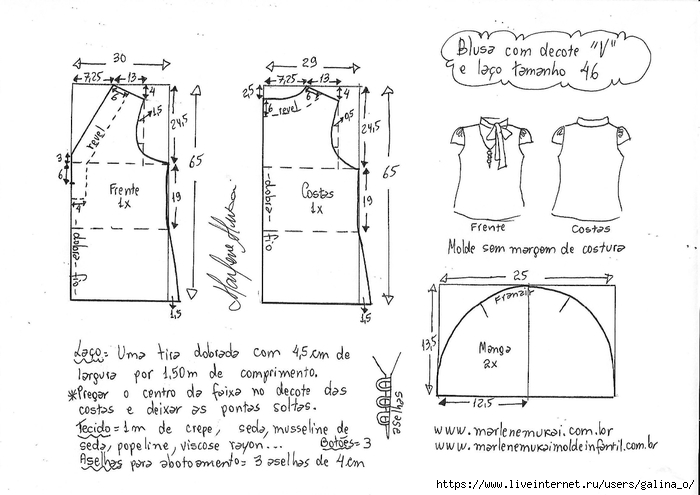 Blusa com decote "V"
e laço tamanho 46
30
7,25
13
6
4
1,5
24,5
revel
3
6
65
Frente
1x
19
4
dobra-fio
1,5
29
7,25
13
2,5
6
6
4
revel
0,5
24,5
65
Costas
1x
19
dobra-fio
1,5
Marlene Mukai
Frente
Costas
Molde sem margem de costura
25
Franzir
13,5
Manga
2x
12,5
Laço= Uma tira dobrada com 4,5 cm de
largura por 1,50m de comprimento.
*Pregar o centro da faixa no decote das
costas e deixar as pontas soltas.
Tecido=1m de crepe, seda, musseline de
seda, popeline, viscose rayon... Botões=3
Aselhas para abotoamento= 3 aselhas de 4cm
aselhas
www.marlenemukai.com.br
www.marlenemukaimoldeinfantil.com.br
https://www.liveinternet.ru/users/galina_o/